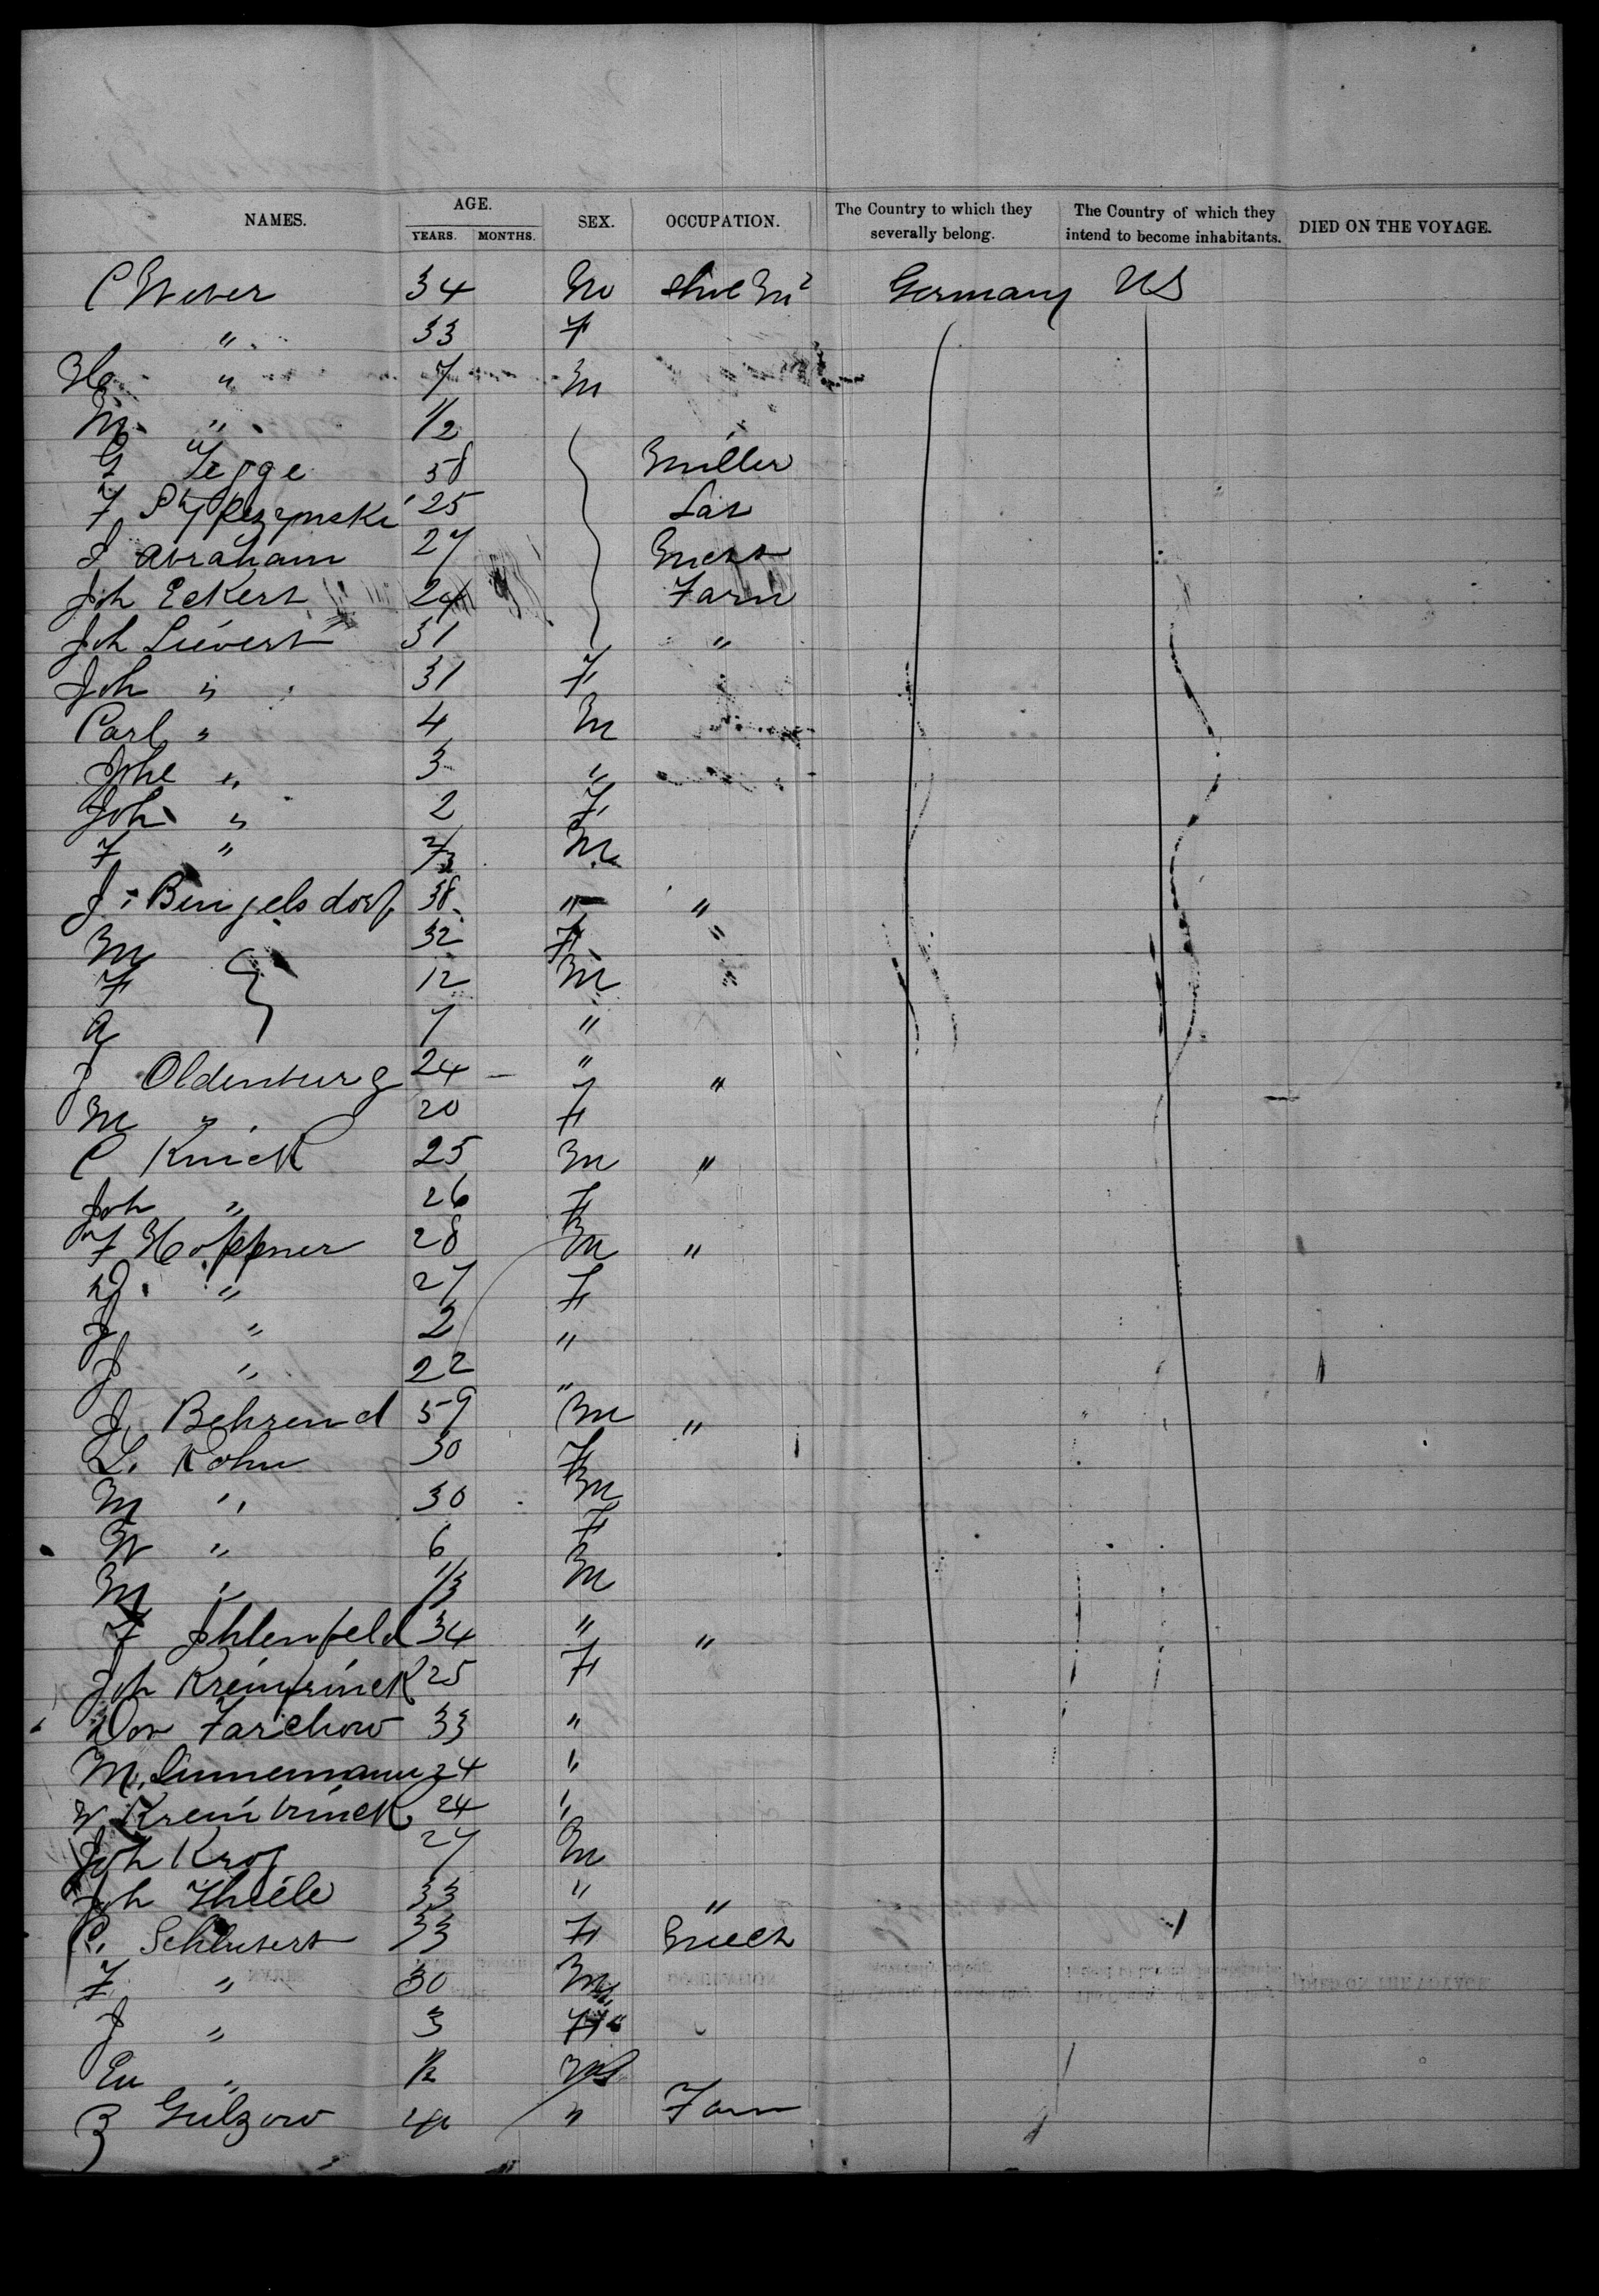 NAMES. AGE. YEARS. MONTHS. SEX. OCCUPATION. The Country to which they severally belong. The Country of which they intend to become inhabitants. DIED ON THE VOYAGE.
C Weber 34 M Germany US
" 33 F
" 7 M
M " 1/2
G Tegge 58 Miller
F 25
J Abraham 27
Joh Eckert 24 Farm
Joh Sievert 31 "
Joh " 31 F
Carl " 4 M
Johe " 3 "
Joh " 2 F
F " M
J. Bengelsdorf 38 " "
M 32 F "
F 12 M "
A 7 "
J Oldenburg 24 " "
M " 20 F
C Knick 25 M "
Joh " 26 F
F Hoppner 28 M "
D. " 27 F
" 2 "
J " 22 "
J Behrend 59 M "
L. Kohn 30 F
M " 30 M
W " 6 F
M " 1/3 M
F Ihlenfeld 34 " "
Joh 25 F
Dor Farchow 33 "
M. Linnemann 24 "
W Kreinbrinck 24 "
Joh 27 M
Joh Thiele 33 " "
C. Schlutert 33 F
F " 30 M
J " 3 F
" M
Gulzow " Farm